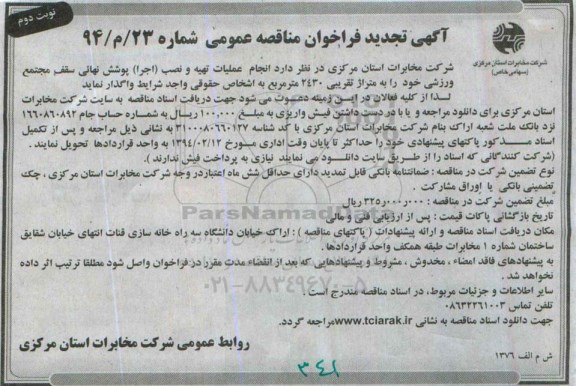 نوبت دوم
آگهی تجدید فراخوان مناقصه عمومی شماره ۹۴/م/۲۳
شرکت مخابرات استان مرکزی
(سهامی خاص)
شرکت مخابرات استان مرکزی در نظر دارد انجام عملیات تهیه و نصب (اجرا) پوشش نهائی سقف مجتمع
ورزشی خود را به متراژ تقریبی ۲۴۳۰ مترمربع به اشخاص حقوقی واجد شرایط واگذار نماید
لذا از کلیه فعالان در این زمینه دعوت می شود جهت دریافت اسناد مناقصه به سایت شرکت مخابرات
استان مرکزی برای دانلود مراجعه و یا با در دست داشتن فیش واریزی به مبلغ ۱۰۰,۰۰۰ ریال به شماره حساب جام ۱۶۶۰۸۶۰۸۹۲
نزد بانک ملت شعبه اراک بنام شرکت مخابرات استان مرکزی با کد شناسه ۳۱۰۰۰۸۰۶۶۰۱۳۷ به نشانی ذیل مراجعه و پس از تکمیل
اسناد مذکور پاکتهای پیشنهادی خود را حداکثر تا پایان وقت اداری مورخ ۱۳۹۴/۰۲/۱۲ به واحد قراردادها تحویل نمایند .
(شرکت کنندگانی که اسناد را از طریق سایت دانلود می نمایند نیازی به پرداخت فیش ندارند ).
نوع تضمین شرکت در مناقصه : ضمانتنامه بانکی قابل تمدید دارای حداقل شش ماه اعتبار دروجه شرکت مخابرات استان مرکزی ، چک
تضمینی بانکی یا اوراق مشارکت .
مبلغ تضمین شرکت در مناقصه : ۳۲۵,۰۰۰,۰۰۰ ریال
تاریخ بازگشائی پاکات قیمت : پس از ارزیابی فنی و مالی
مکان دریافت اسناد مناقصه و ارائه پیشنهادات ( پاکتهای مناقصه ) : اراک خیابان دانشگاه سه راه خانه سازی قنات انتهای خیابان شقایق
ساختمان شماره ۱ مخابرات طبقه همکف واحد قراردادها .
به پیشنهادهای فاقد امضاء ، مخدوش ، مشروط و پیشنهادهایی که بعد از انقضاء مدت مقرر در فراخوان واصل شود مطلقا ترتیب اثر داده
نخواهد شد .
سایر اطلاعات و جزئیات مربوط، در اسناد مناقصه مندرج است .
تلفن تماس ۰۸۶۳۲۲۶۱۰۰۳
جهت دانلود اسناد مناقصه به نشانی www.tciarak.ir مراجعه گردد.
روابط عمومی شرکت مخابرات استان مرکزی
ش م الف ۱۳۷۶
۳۴۱
ParsNamadData
۰۲۱-۸۸۳۴۹۶۷۰-۵